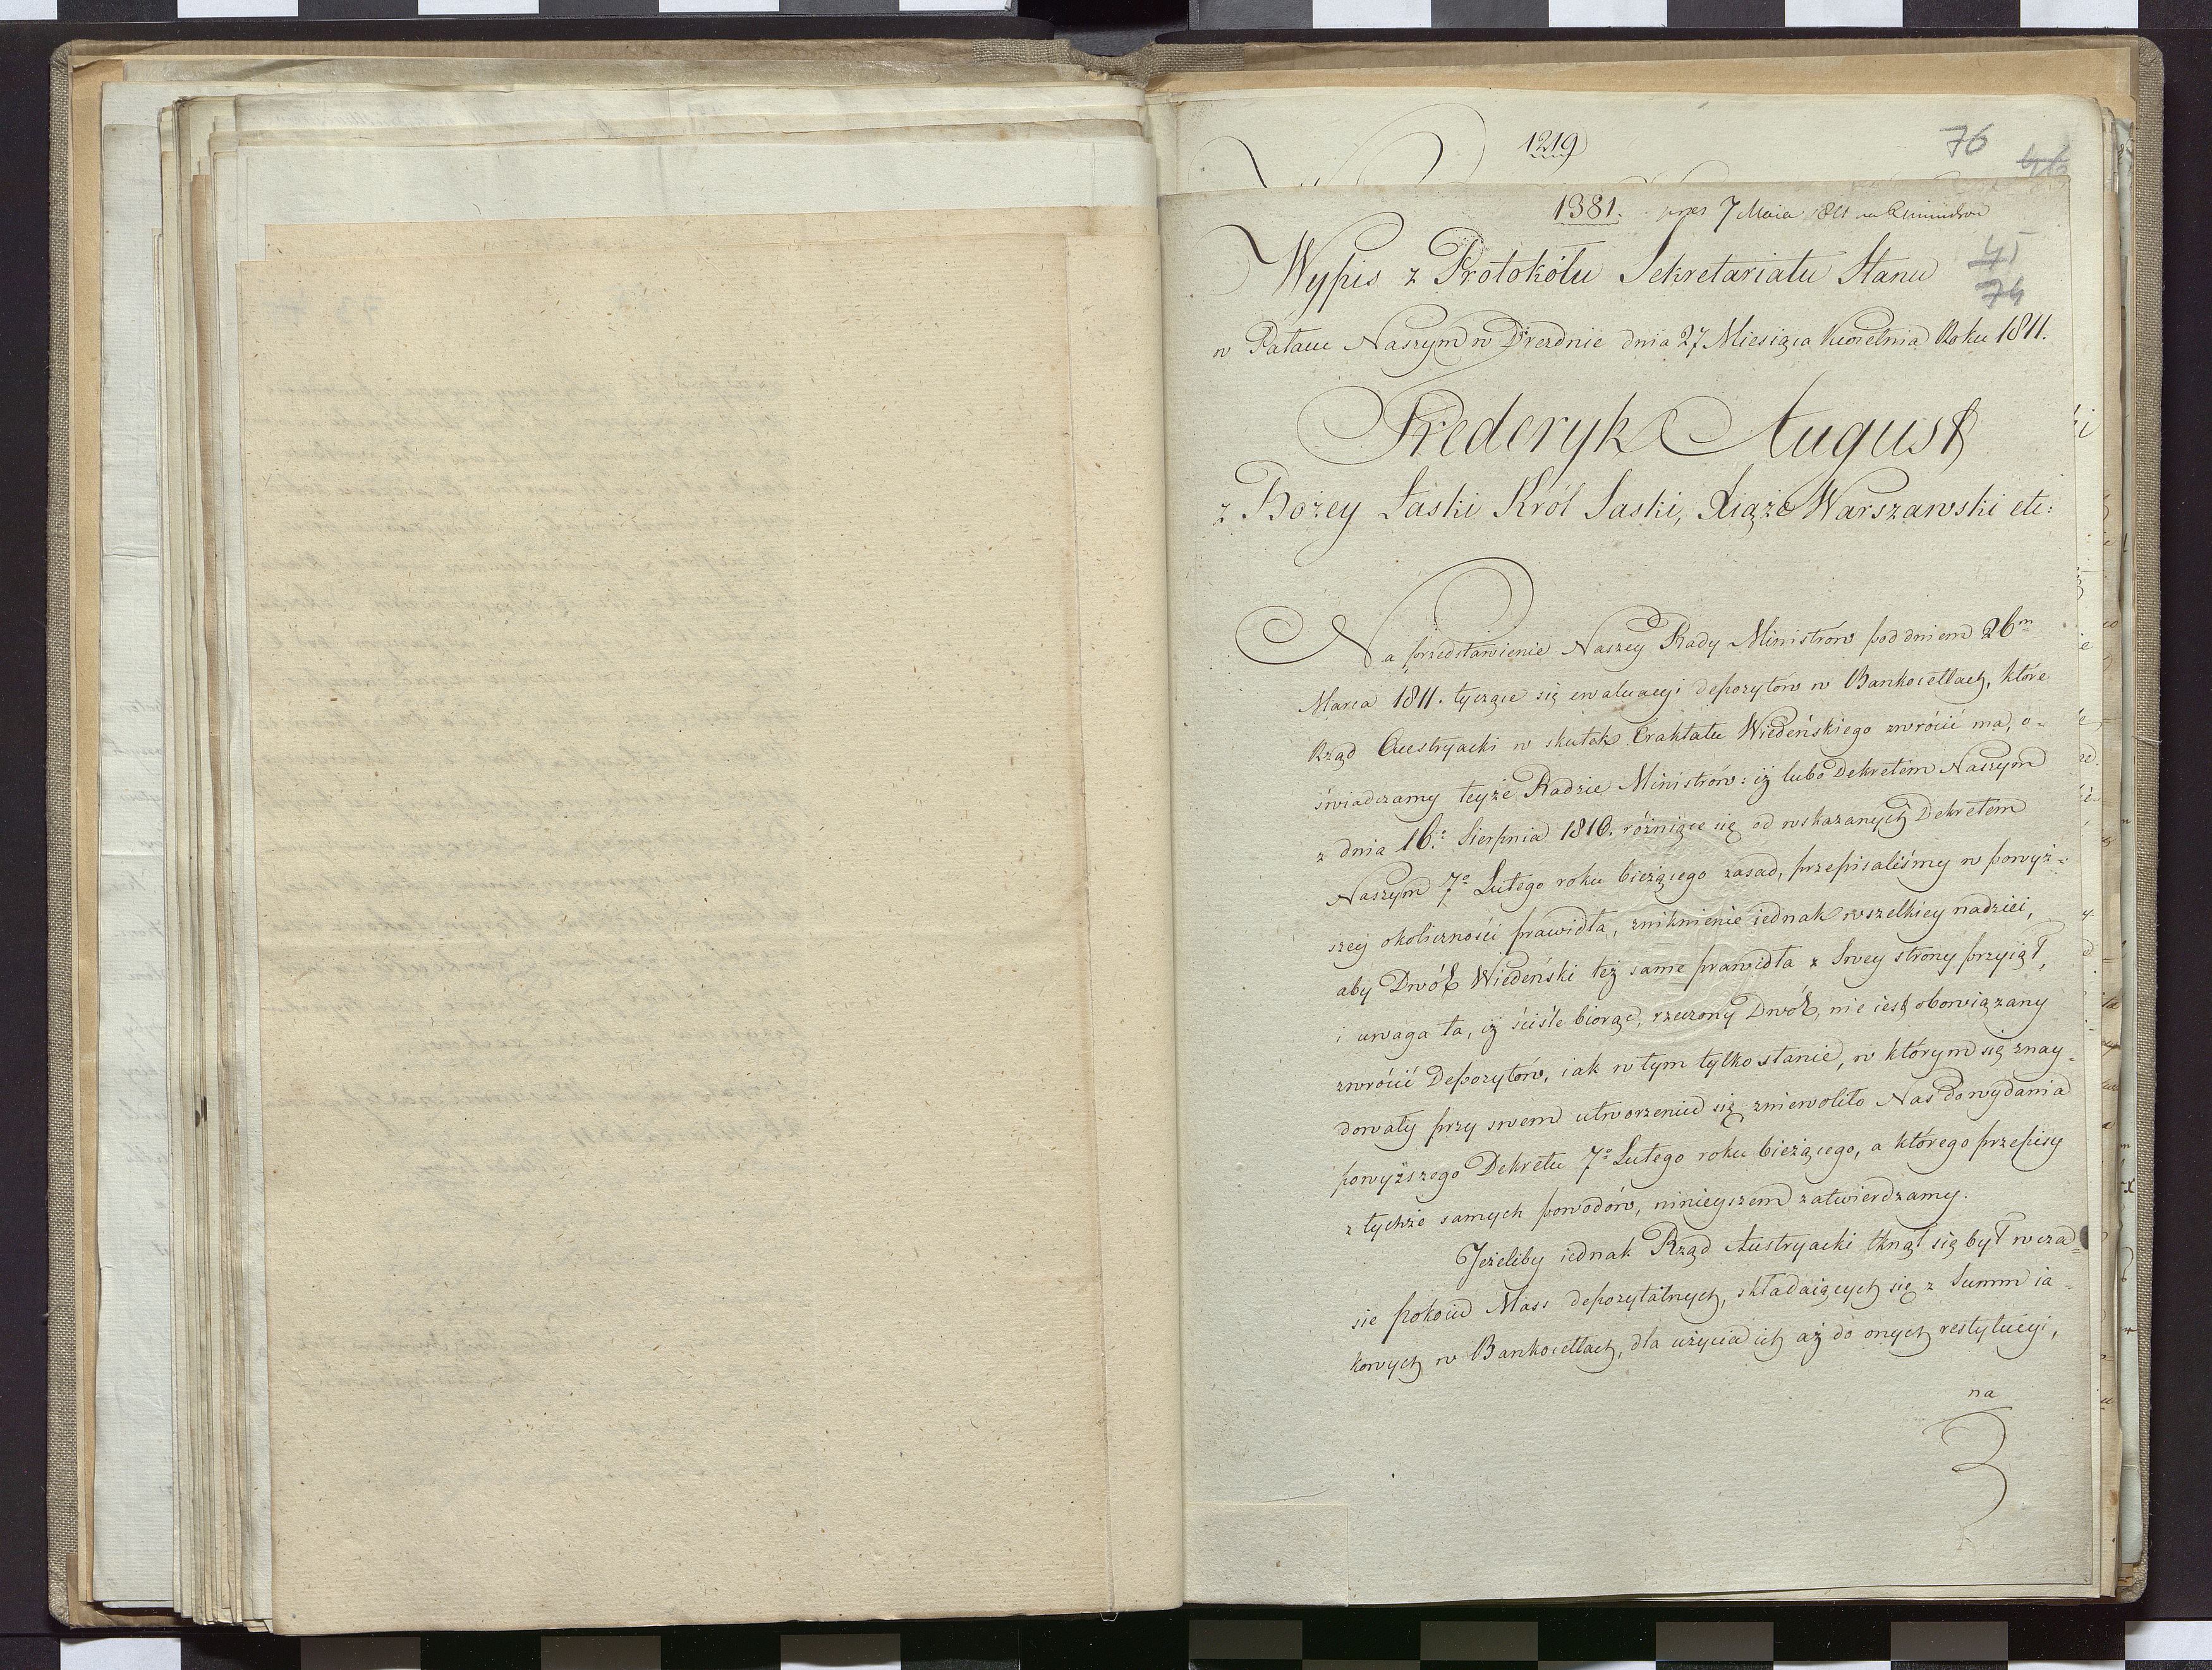 1219
76
46
1381. pres 7 Maia 1811
Wypis z Protokółu Sekretariatu Stanu
45
74
w Pałacu Naszym w Dreźnie dnia 27 Miesiąca Kwietnia Roku 1811.
Frederyk August
z Bożey Łaski Król Saski, Xiąże Warszawski etc:
Na przedstawienie Naszey Rady Ministrów pod dniem 26m
Marca 1811. tyczące się ewaluacyi depozytów w Bankocetlach, które
Rząd Austryacki w skutek Traktatu Wiedeńskiego zwrócić ma, o-
świadczamy teyże Radzie Ministrów: iż lubo Dekretem Naszym
z dnia 16: Sierpnia 1810. różniące się od wskazanych Dekretem
Naszym 7o Lutego roku bieżącego zasad, przepisaliśmy w powyż-
szey okoliczności prawidła, zniknienie iednak wszelkiey nadziei,
aby Dwór Wiedeński też same prawidła z Swey strony przyiął,
i uwaga ta, iż ściśle biorąc, rzeczony Dwór, nie iest obowiązany
zwrócić Depozytów, iak w tym tylko stanie, w którym się znay-
dowały przy swem utworzeniu się zniewoliło Nas do wydania
powyższego Dekretu 7o Lutego roku bieżącego, a którego przepisy
z tychże samych powodów, ninieyszem zatwierdzamy.
Jeżeliby iednak Rząd Austryacki tknął się był w cza-
sie pokoiu Mass depozytalnych, składaiących się z Summ ia-
kowych w Bankocetlach, dla użycia ich aż do onych restytucyi,
na